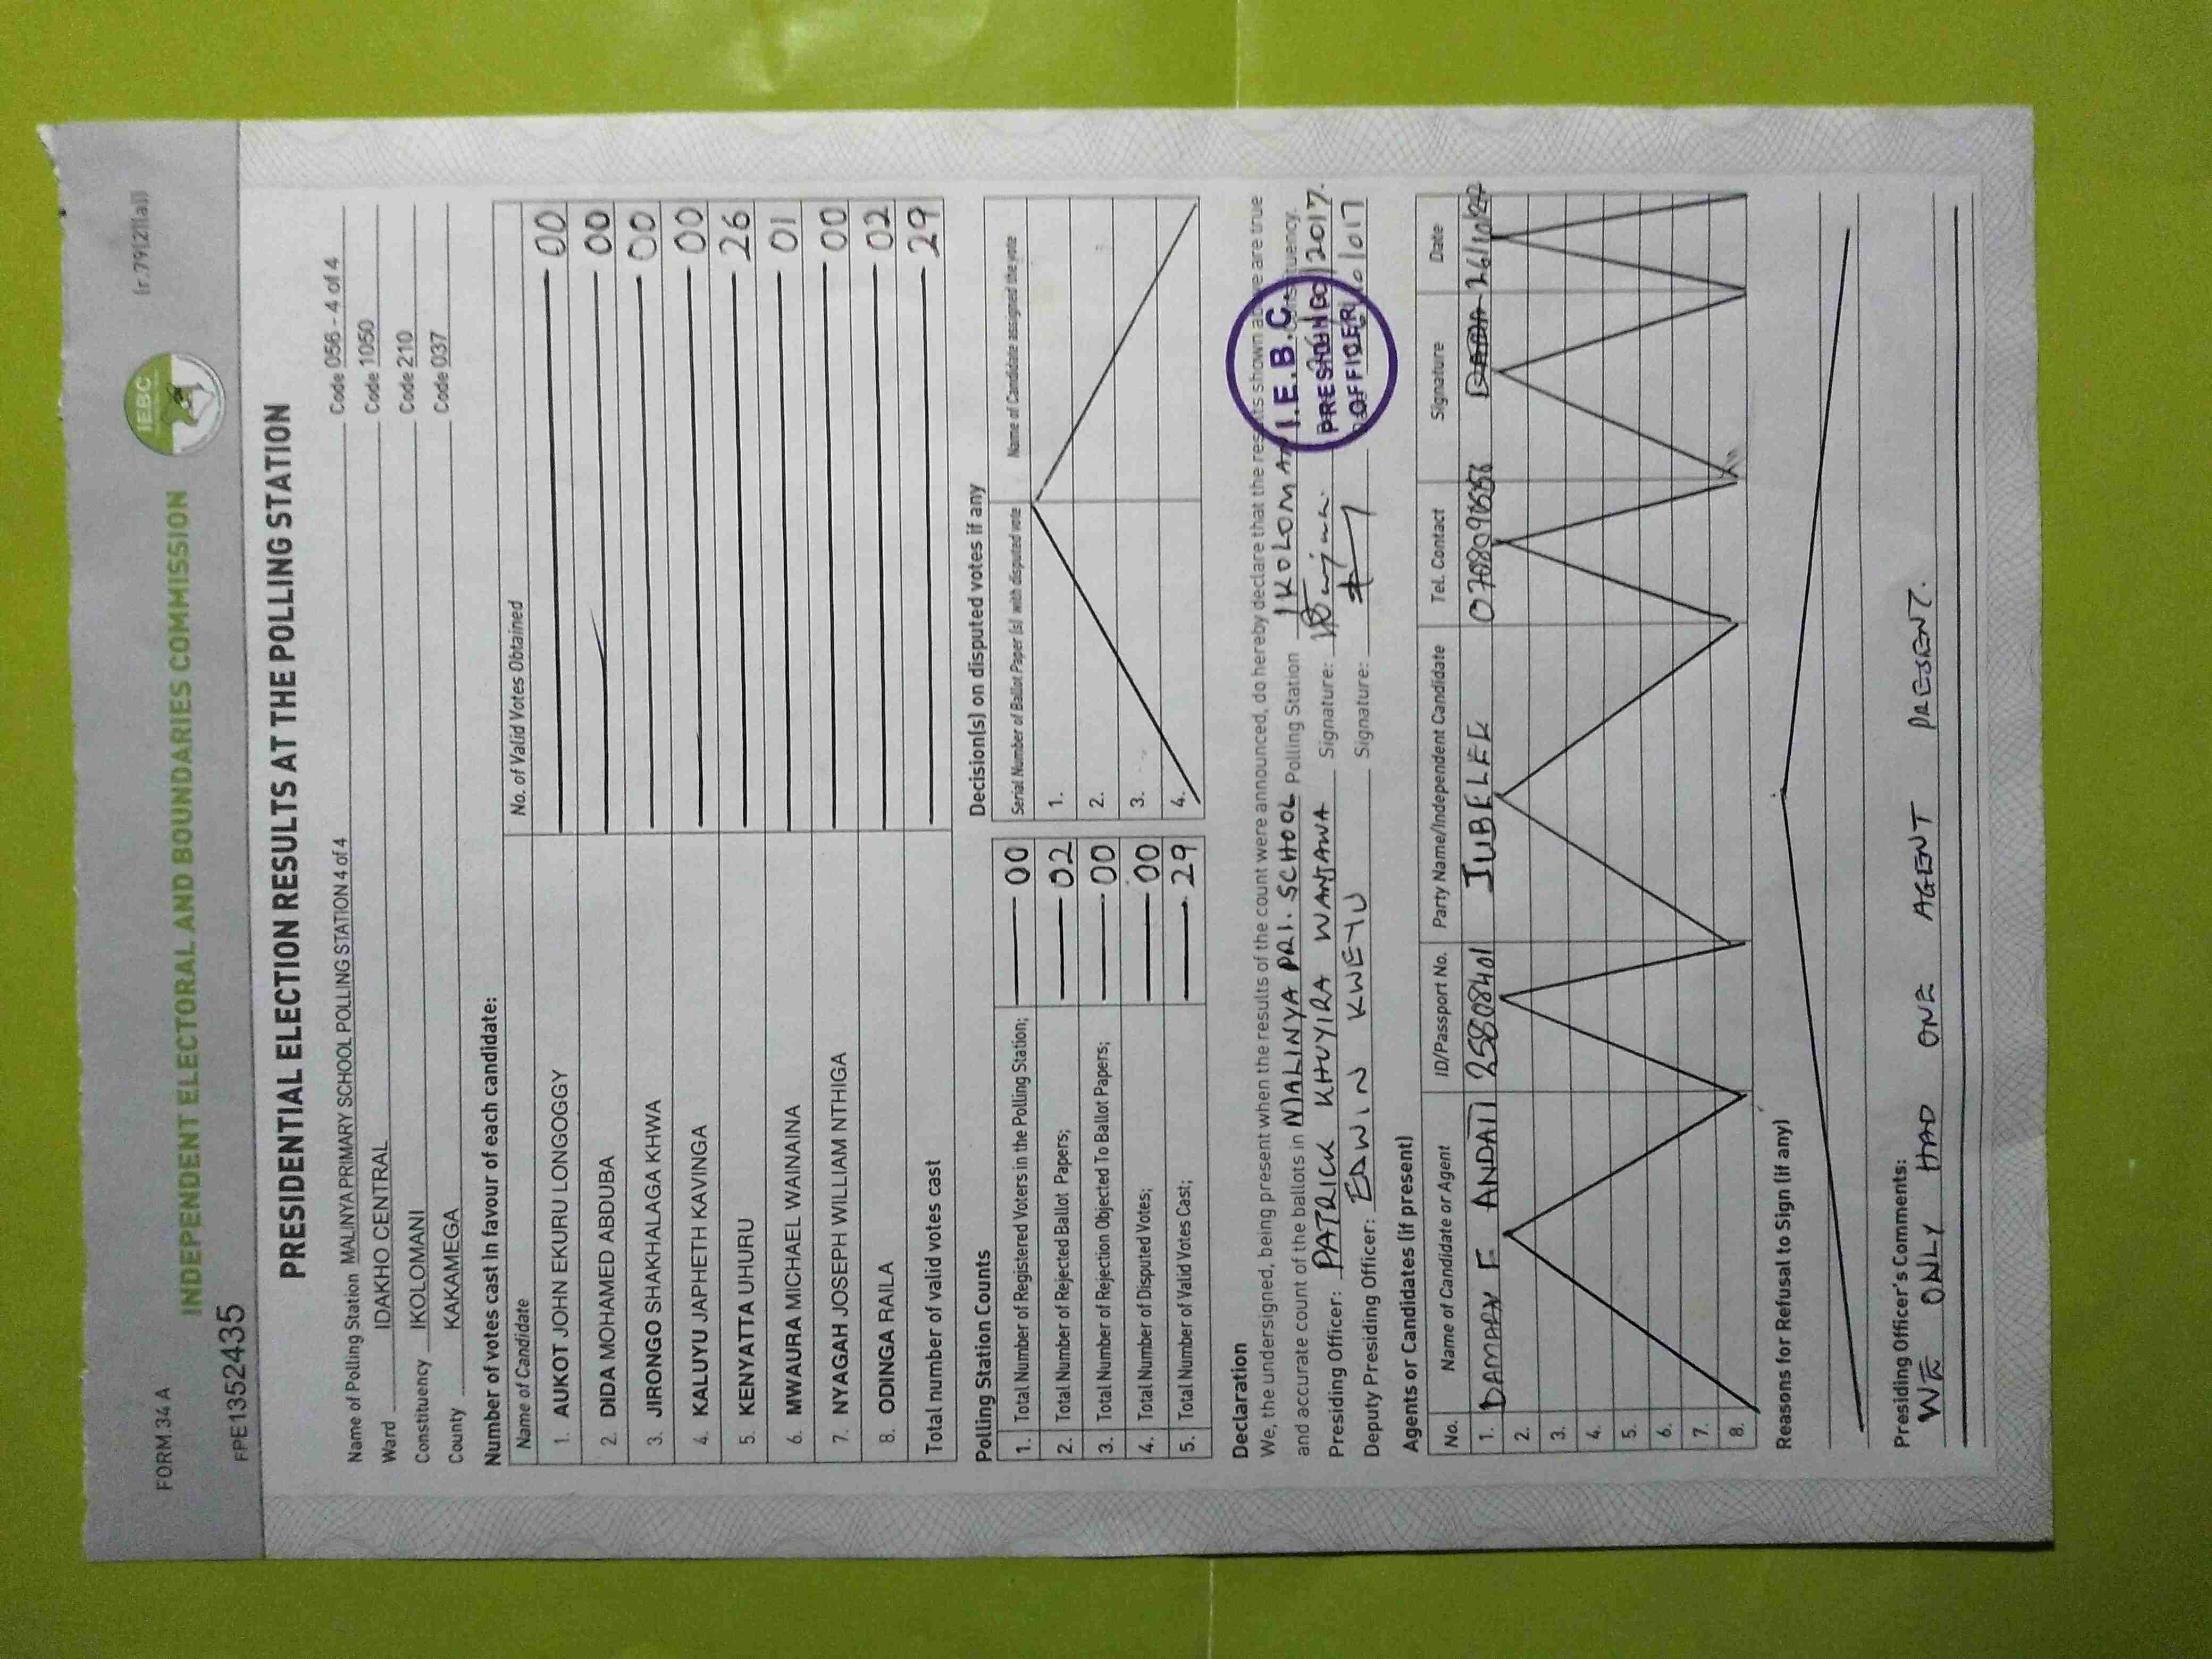 FORM 34 A
(r.79(2)(a))
IEBC
INDEPENDENT ELECTORAL AND BOUNDARIES COMMISSION
FPE1352435
PRESIDENTIAL ELECTION RESULTS AT THE POLLING STATION
Name of Polling Station MALINYA PRIMARY SCHOOL POLLING STATION 4 of 4 Code 056 - 4 of 4
Ward IDAKHO CENTRAL Code 1050
Constituency IKOLOMANI Code 210
County KAKAMEGA Code 037
Number of votes cast in favour of each candidate:
Name of Candidate No. of Valid Votes Obtained
1. AUKOT JOHN EKURU LONGOGGY 00
2. DIDA MOHAMED ABDUBA 00
3. JIRONGO SHAKHALAGA KHWA 00
4. KALUYU JAPHETH KAVINGA 00
5. KENYATTA UHURU 26
6. MWAURA MICHAEL WAINAINA 01
7. NYAGAH JOSEPH WILLIAM NTHIGA 00
8. ODINGA RAILA 02
Total number of valid votes cast 29
Polling Station Counts
1. Total Number of Registered Voters in the Polling Station; 00
2. Total Number of Rejected Ballot Papers; 02
3. Total Number of Rejection Objected To Ballot Papers; 00
4. Total Number of Disputed Votes; 00
5. Total Number of Valid Votes Cast; 29
Decision(s) on disputed votes if any
Serial Number of Ballot Paper (s) with disputed vote Name of Candidate assigned the vote
1.
2.
3.
4.
Declaration
We, the undersigned, being present when the results of the count were announced, do hereby declare that the results shown above are true
and accurate count of the ballots in MALINYA PRI. SCHOOL Polling Station IKOLOMANI Constituency.
Presiding Officer: PATRICK KHUYIRA WANJAWA Signature: 2017.
Deputy Presiding Officer: EDWIN KWEYU Signature:
I.E.B.C.
PRESIDING
OFFICER
Agents or Candidates (if present)
No. Name of Candidate or Agent ID/Passport No. Party Name/Independent Candidate Tel. Contact Signature Date
1. ANDATI 25808401 JUBELEE
2.
3.
4.
5.
6.
7.
8.
Reasons for Refusal to Sign (if any)
Presiding Officer's Comments:
WE ONLY HAD ONE AGENT PRESENT.